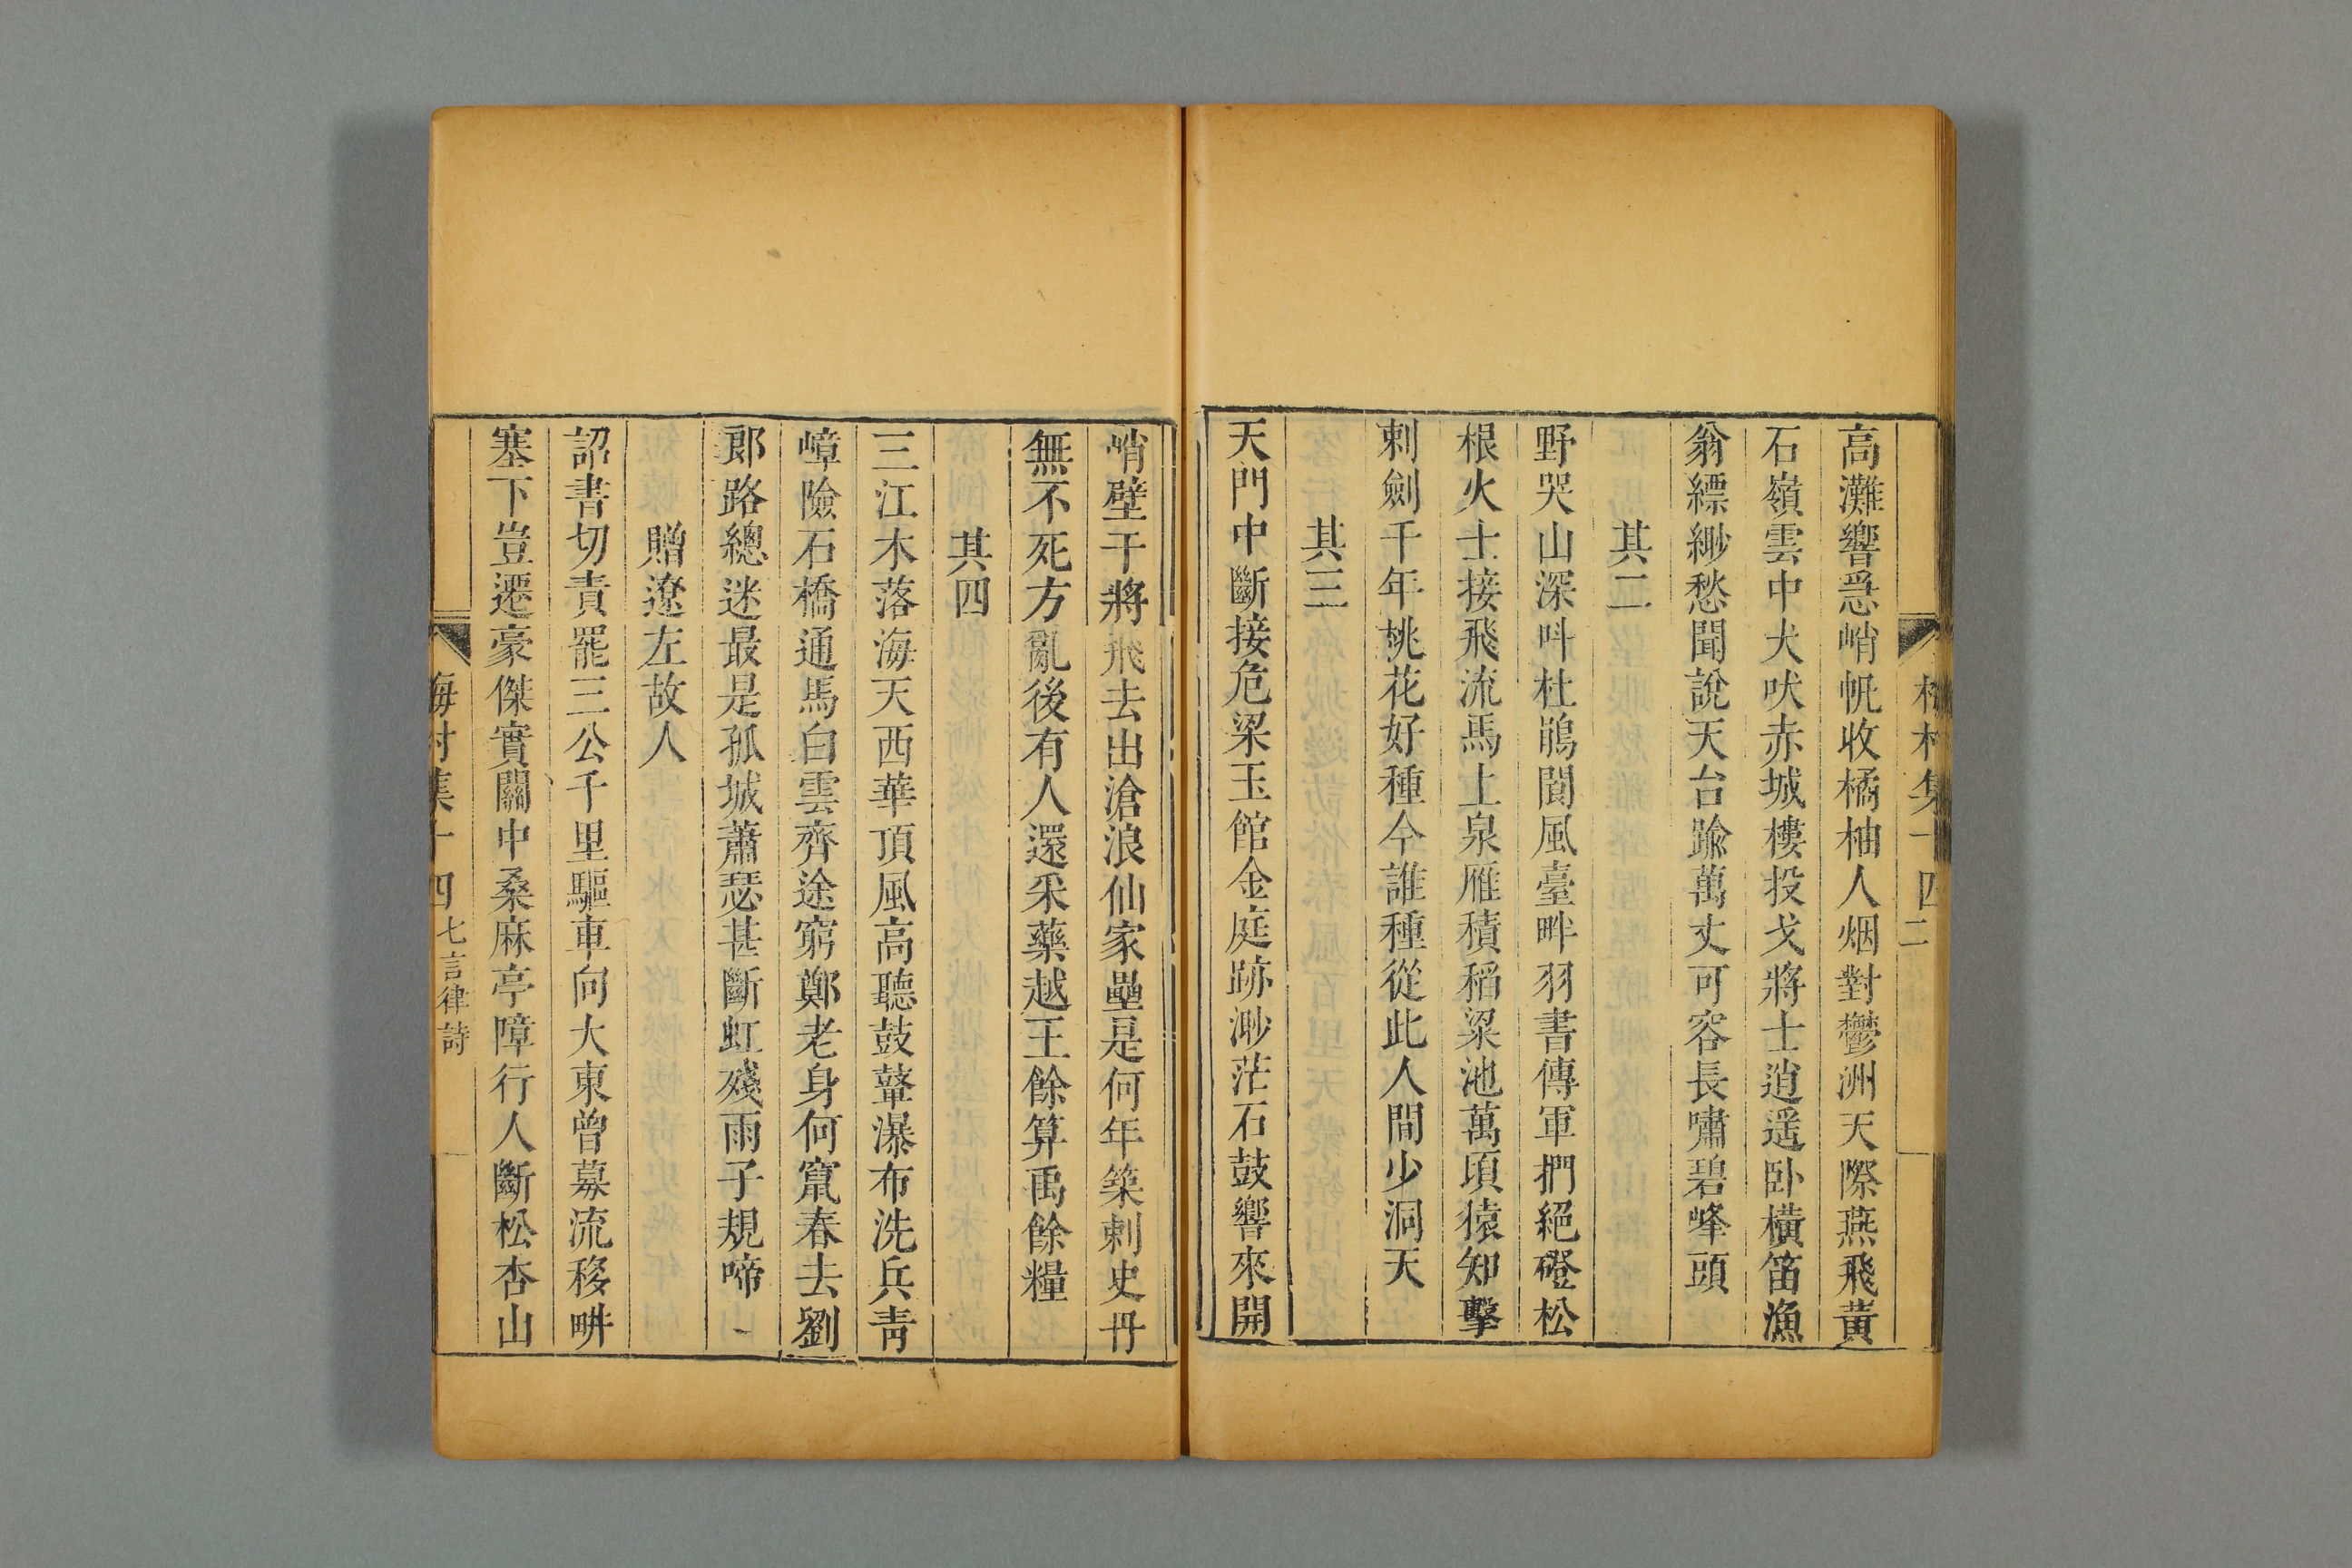 高灘響急峭帆收橘柚人烟對鬱洲天際燕飛黃
石嶺雲中犬吠赤城樓投戈將士逍遥卧橫笛漁
翁縹緲愁聞說天台踰萬丈可容長嘯碧峰頭
其二
野哭山深呌杜鵑閬風臺畔羽書傳軍捫絕磴松
根火士接飛流馬上泉雁積稻粱池萬頃猿知擊
刺劍千年桃花好種今誰種從此人間少洞天
其三
天門中斷接危梁玉館金庭跡渺茫石鼓響來開
峭壁干將飛去出滄浪仙家壘是何年築刺史丹
無不死方亂後有人還采藥越王餘算禹餘糧
其四
三江木落海天西華頂風高聽鼓鼙瀑布洗兵靑
嶂險石橋通馬白雲齊途窮鄭老身何竄春去劉
郞路總迷最是孤城蕭瑟甚斷虹殘雨子規啼
贈遼左故人
詔書切責罷三公千里驅車向大東曾募流移畊
塞下豈遷豪傑實關中桑麻亭障行人斷松杏山
梅村集十四 七言律詩